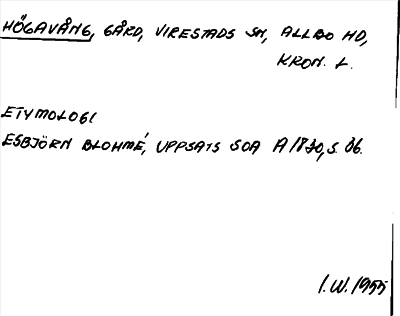 HÖGAVÅNG, GÅRD, VIRESTADS SN, ALLBO HD,
KRON. L.
ETYMOLOGI
ESBJÖRN BLOHMÉ, UPPSATS SOA A 1830, S. 86.
I.W. 1955